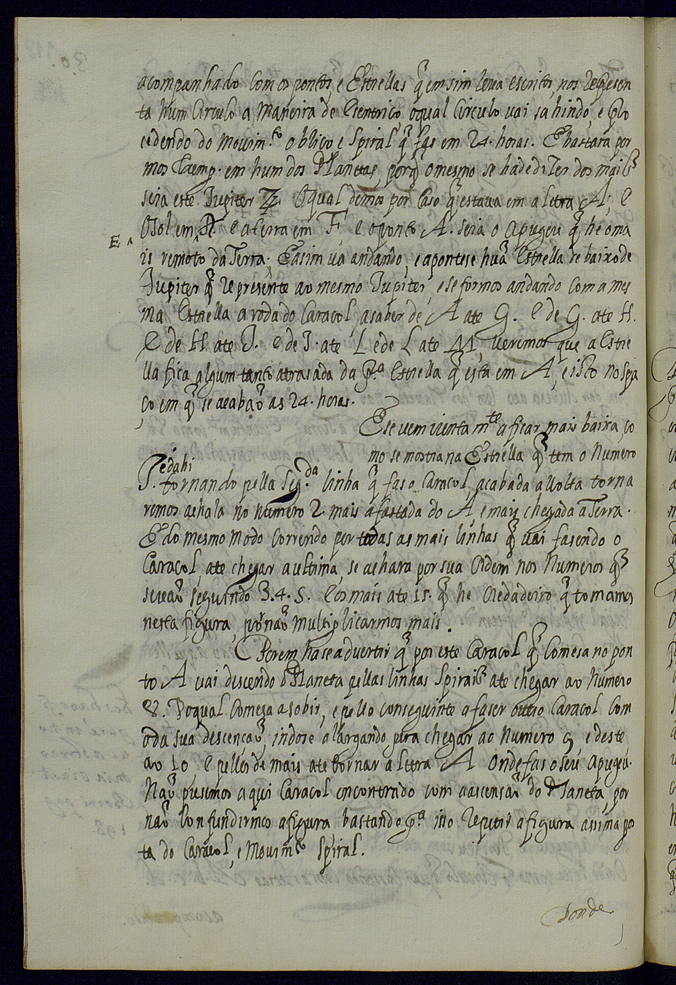 acompanhado com os pontos, e Estrellas q̃ em sim leva escritos, nos represen
ta hum Circulo a Maneira de Exentrico oqual Circulo vai sahindo, e pro
cedendo do movim.to obliquo e Spiral q̃ fas em 24. horas. E bastara por
mos Exemp. em hum dos Planetas, porq̃ o mesmo se hade diser dos mais
seia este Jupiter ♃ Oqual demos por Caso q̃ estava em a letra A. e
O Sol em R e a terra em F, e o ponto A. seia o Apugeu q̃ he o ma
E.
is remoto da Terra. E asim va andando, e apontese huã Estrella de baixo de
Jupiter q̃ represente ao mesmo Jupiter, e se formos andando com a mes
ma Estrella a roda do Caracol a saber de A ate G. e de G. ate H.
e de H ate I. e de I. ate L e de L ate M veremos que a Estre
lla fica algum tanto atrasada da pr.a Estrella q̃ esta em A, e isto no spa
ço em q̃ se acabaõ as 24. horas.
E se vem iunta m.te a ficar mais baixa, co
mo se mostra na Estrella q̃ tem o Numero
J. e dahi
tornando pella seg.da linha q̃ fas o Caracol acabada a volta torna
remos achala no numero 2. mais afastada do A e mais chegada a Terra.
E do mesmo modo correndo por todas as mais linhas q̃ vai fasendo o
Caracol, ate chegar a ultima, se achara por sua Ordem nos Numeros q̃
se vaõ seguindo 3. 4. 5. e os mais ate 15. q̃ he o verdadeiro q̃ tomamos
nesta figura por naõ multiplicarmos mais.
Porem hase advertir q̃ por este Caracol q̃ Comesa no pon
to A vai descendo o Planeta pellas linhas Spirais ate chegar ao Numero
8. Do qual Comeza a sobir, e pello conseguinte a faser outro Caracol com
o da sua descencaõ indose alargando para chegar ao Numero 9 e deste
ao 10 e pellos de mais ate tornar a letra A Onde fas o seu Apugeu.
Naõ pusemos aqui Caracol encontrado com a ascensaõ do Planeta por
naõ confundirmos a figura bastando p.a isso a figura assima po
ta do Caracol, e Movim.to Spiral.
donde